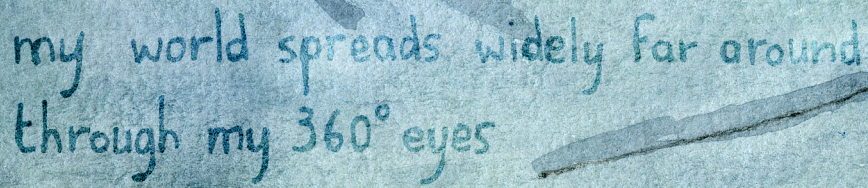 my world spreads widely far around
through my 360° eyes